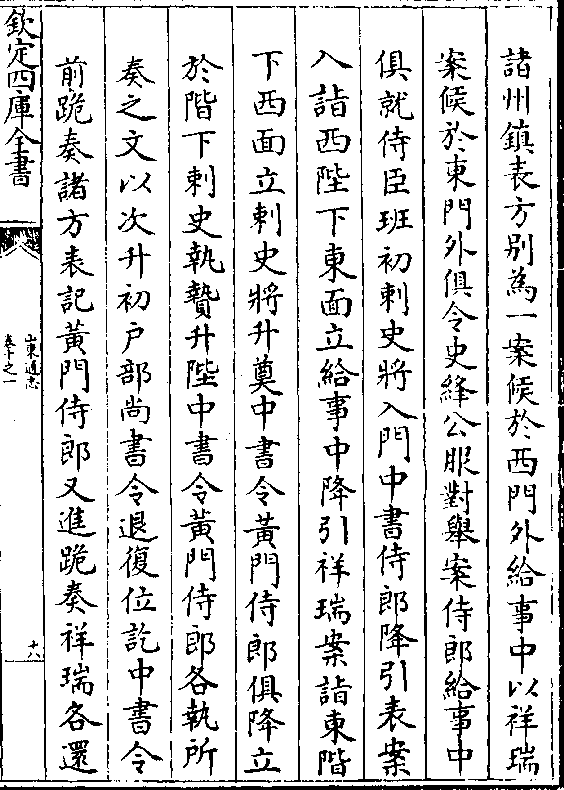 諸州鎮表方别為一案候於西門外給事中以祥瑞
案候於東門外俱令史絳公服對舉案侍郎給事中
俱就侍臣班初刺史將入門中書侍郎降引表案
入詣西陛下東面立給事中降引祥瑞案詣東階
下西面立刺史將升奠中書令黃門侍郎俱降立
於階下刺史執贄升陛中書令黃門侍郎各執所
奏之文以次升初户部尚書令退復位訖中書令
前跪奏諸方表記黃門侍郎又進跪奏祥瑞各還
欽定四庫全書
山東通志
卷十之一
十八